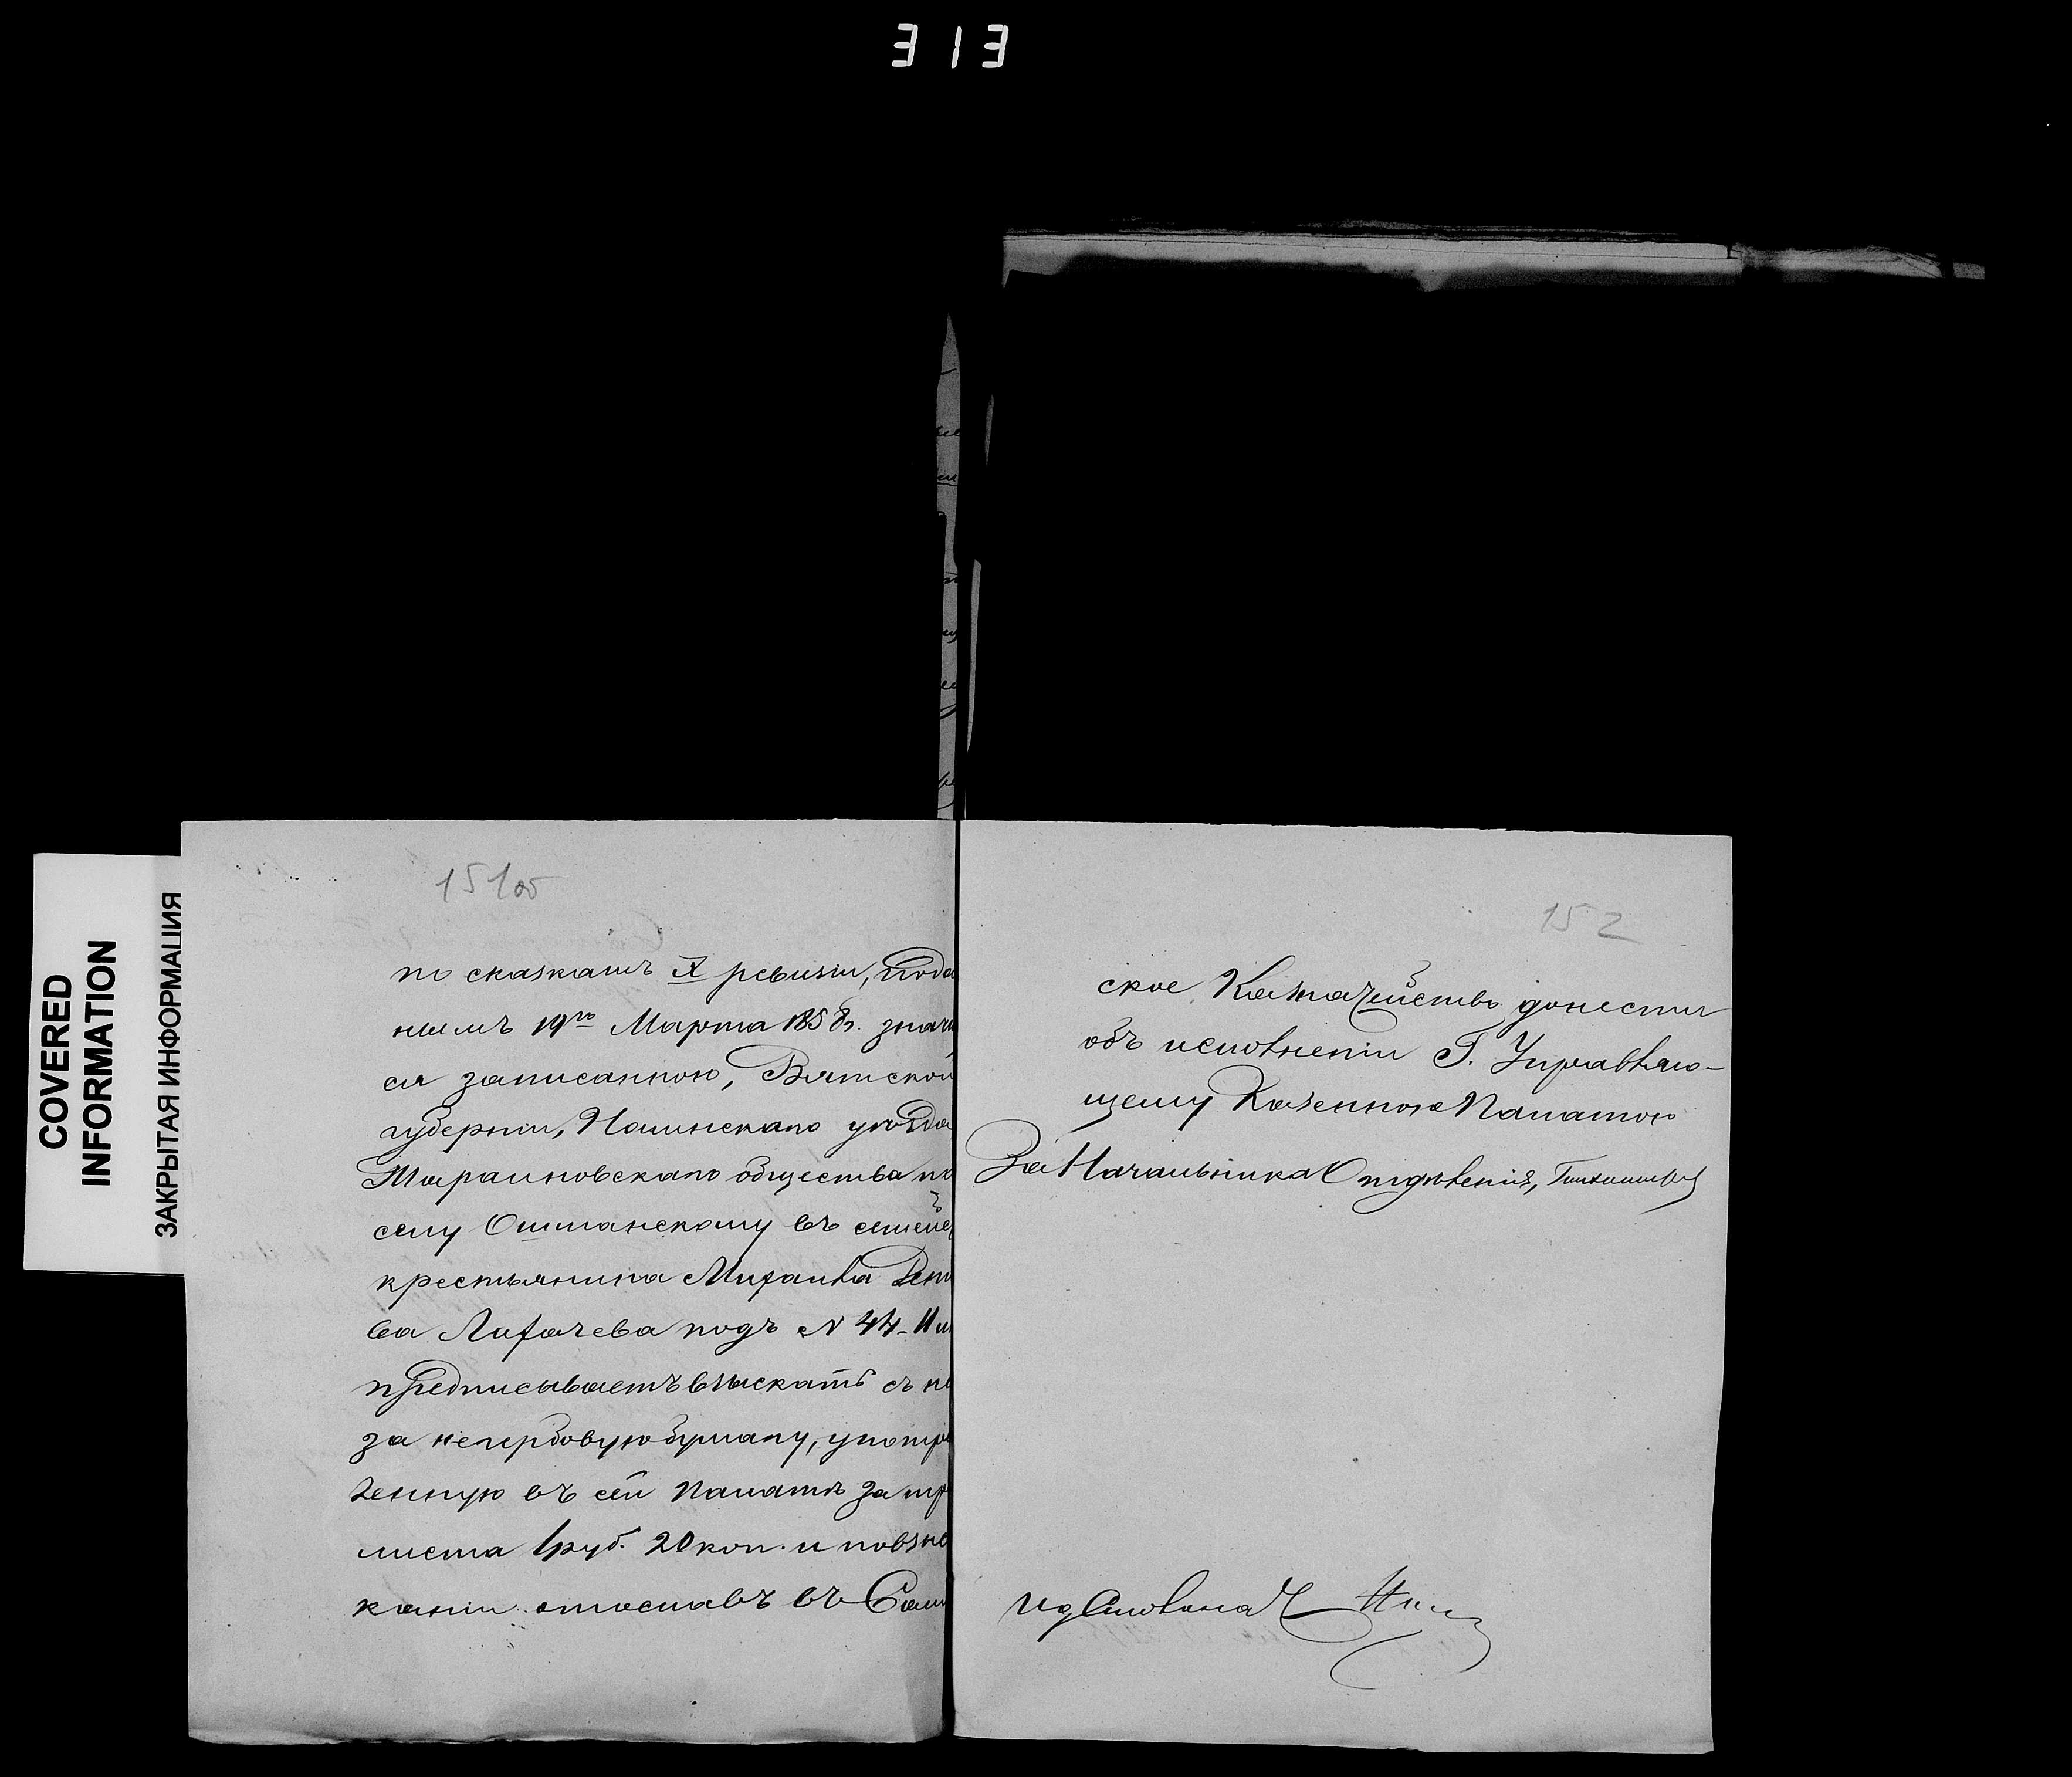 313
COVERED
INFORMATION
ЗАКРЫТАЯ ИНФОРМАЦИЯ
151об
по сказкамъ X ревизіи, пода
нымъ 19го Марта 1858г. значи
ся записанною, Вятской
губерніи, Нолинскаго уѣзда
общества по
селу Ошланскому въ семей
крестьянина Михаила
ва Лихачева подъ N 44-
предписываетъ взыскать съ не
за негербовую бумагу, употре
ленную въ сей Палатѣ за тр
листа 1 руб. 20 коп. и по взы
каніи отославъ въ Сам
152
ское Казначейство донести
объ исполненіи Г. Управляю-
щему Казенною Палатою
За Начальника Отдѣленія,
Столоначал